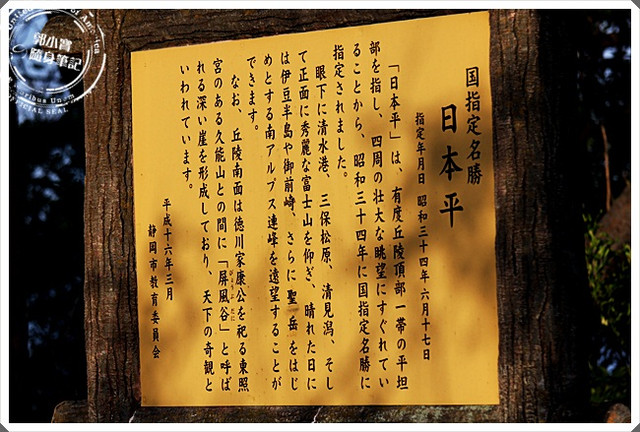 国指定名勝
日本平
指定年月日 昭和三十四年六月十七日
「日本平」は、有度丘陵頂部一帯の平坦
部を指し、四周の壮大な眺望にすぐれてい
ることから、昭和三十四年に国指定名勝に
指定されました。
眼下に清水港、三保松原、清見潟、そし
て正面に秀麗な富士山を仰ぎ、晴れた日に
は伊豆半島や御前崎、さらに聖岳をはじ
めとする南アルプス連峰を遠望することが
できます。
なお、丘陵南面は徳川家康公を祀る東照
宮のある久能山との間に「屏風谷」と呼ば
びょうぶだに
れる深い崖を形成しており、天下の奇観と
いわれています。
平成十六年三月
静岡市教育委員会
郭小寶
隨身筆記